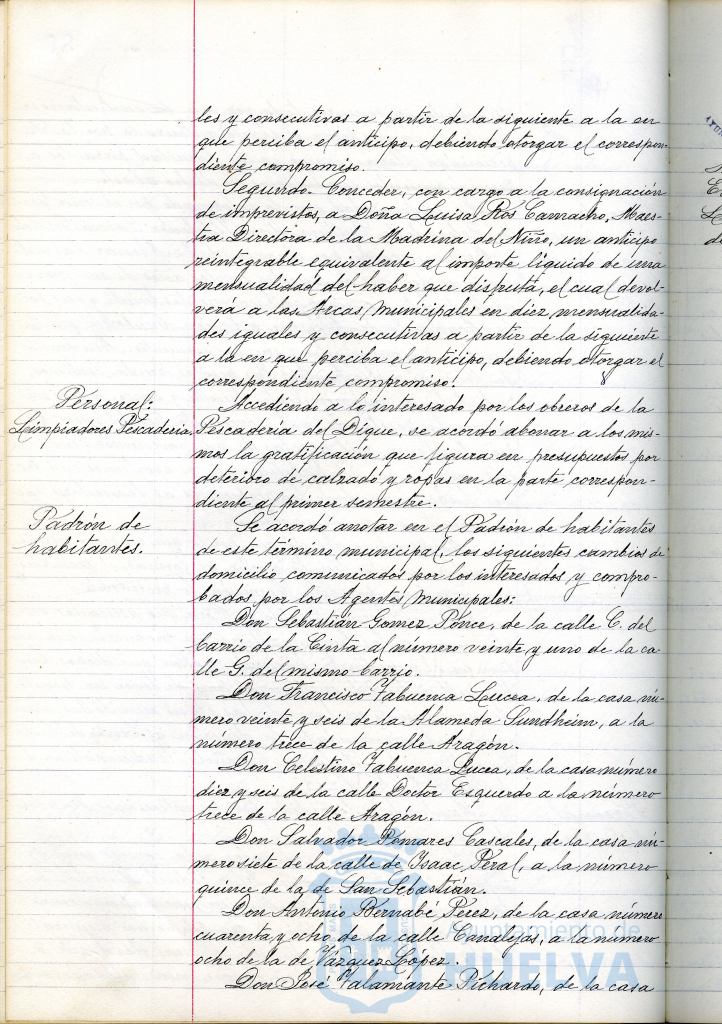 les y consecutivas a partir de la siguiente a la en
que perciba el anticipo, debiendo otorgar el correspon-
diente compromiso.
Segundo.- Conceder, con cargo a la consignación
de imprevistos, a Doña Luisa Ros Camacho, Maes-
tra Directora de la Madrina del Niño, un anticipo
reintegrable equivalente al importe líquido de una
mensualidad del haber que disfruta, el cual devol-
verá a las Arcas municipales en diez mensualida-
des iguales y consecutivas a partir de la siguiente
a la en que perciba el anticipo, debiendo otorgar el
correspondiente compromiso.
Personal:
Limpiadores Pescaderia.
Accediendo a lo interesado por los obreros de la
Pescadería del Dique, se acordó abonar a los mis-
mos la gratificación que figura en presupuestos por
deterioro de calzado y ropas en la parte correspon-
diente al primer semestre.
Padrón de
habitantes.
Se acordó anotar en el Padrón de habitantes
de este término municipal, los siguientes cambios de
domicilio comunicados por los interesados y compro-
bados por los Agentes municipales:
Don Sebastián Gomez Ponce, de la calle C. del
barrio de la Cinta al número veinte y uno de la ca-
lle G. del mismo barrio.
Don Francisco Yabuenca Lucea, de la casa nú-
mero veinte y seis de la Alameda Sundheim, a la
número trece de la calle Aragón.
Don Celestino Yabuenca Lucea, de la casa número
diez y seis de la calle Doctor Esquerdo a la número
trece de la calle Aragón.
Don Salvador Pomares Cascales, de la casa nú-
mero siete de la calle de Isaac Peral, a la número
quince de la de San Sebastián.
Don Antonio Bernabé Pérez, de la casa número
cuarenta y ocho de la calle Canalejas, a la número
ocho de la de Vázquez López.
Don José Valamante Pichardo, de la casa
Ayuntamiento de
HUELVA